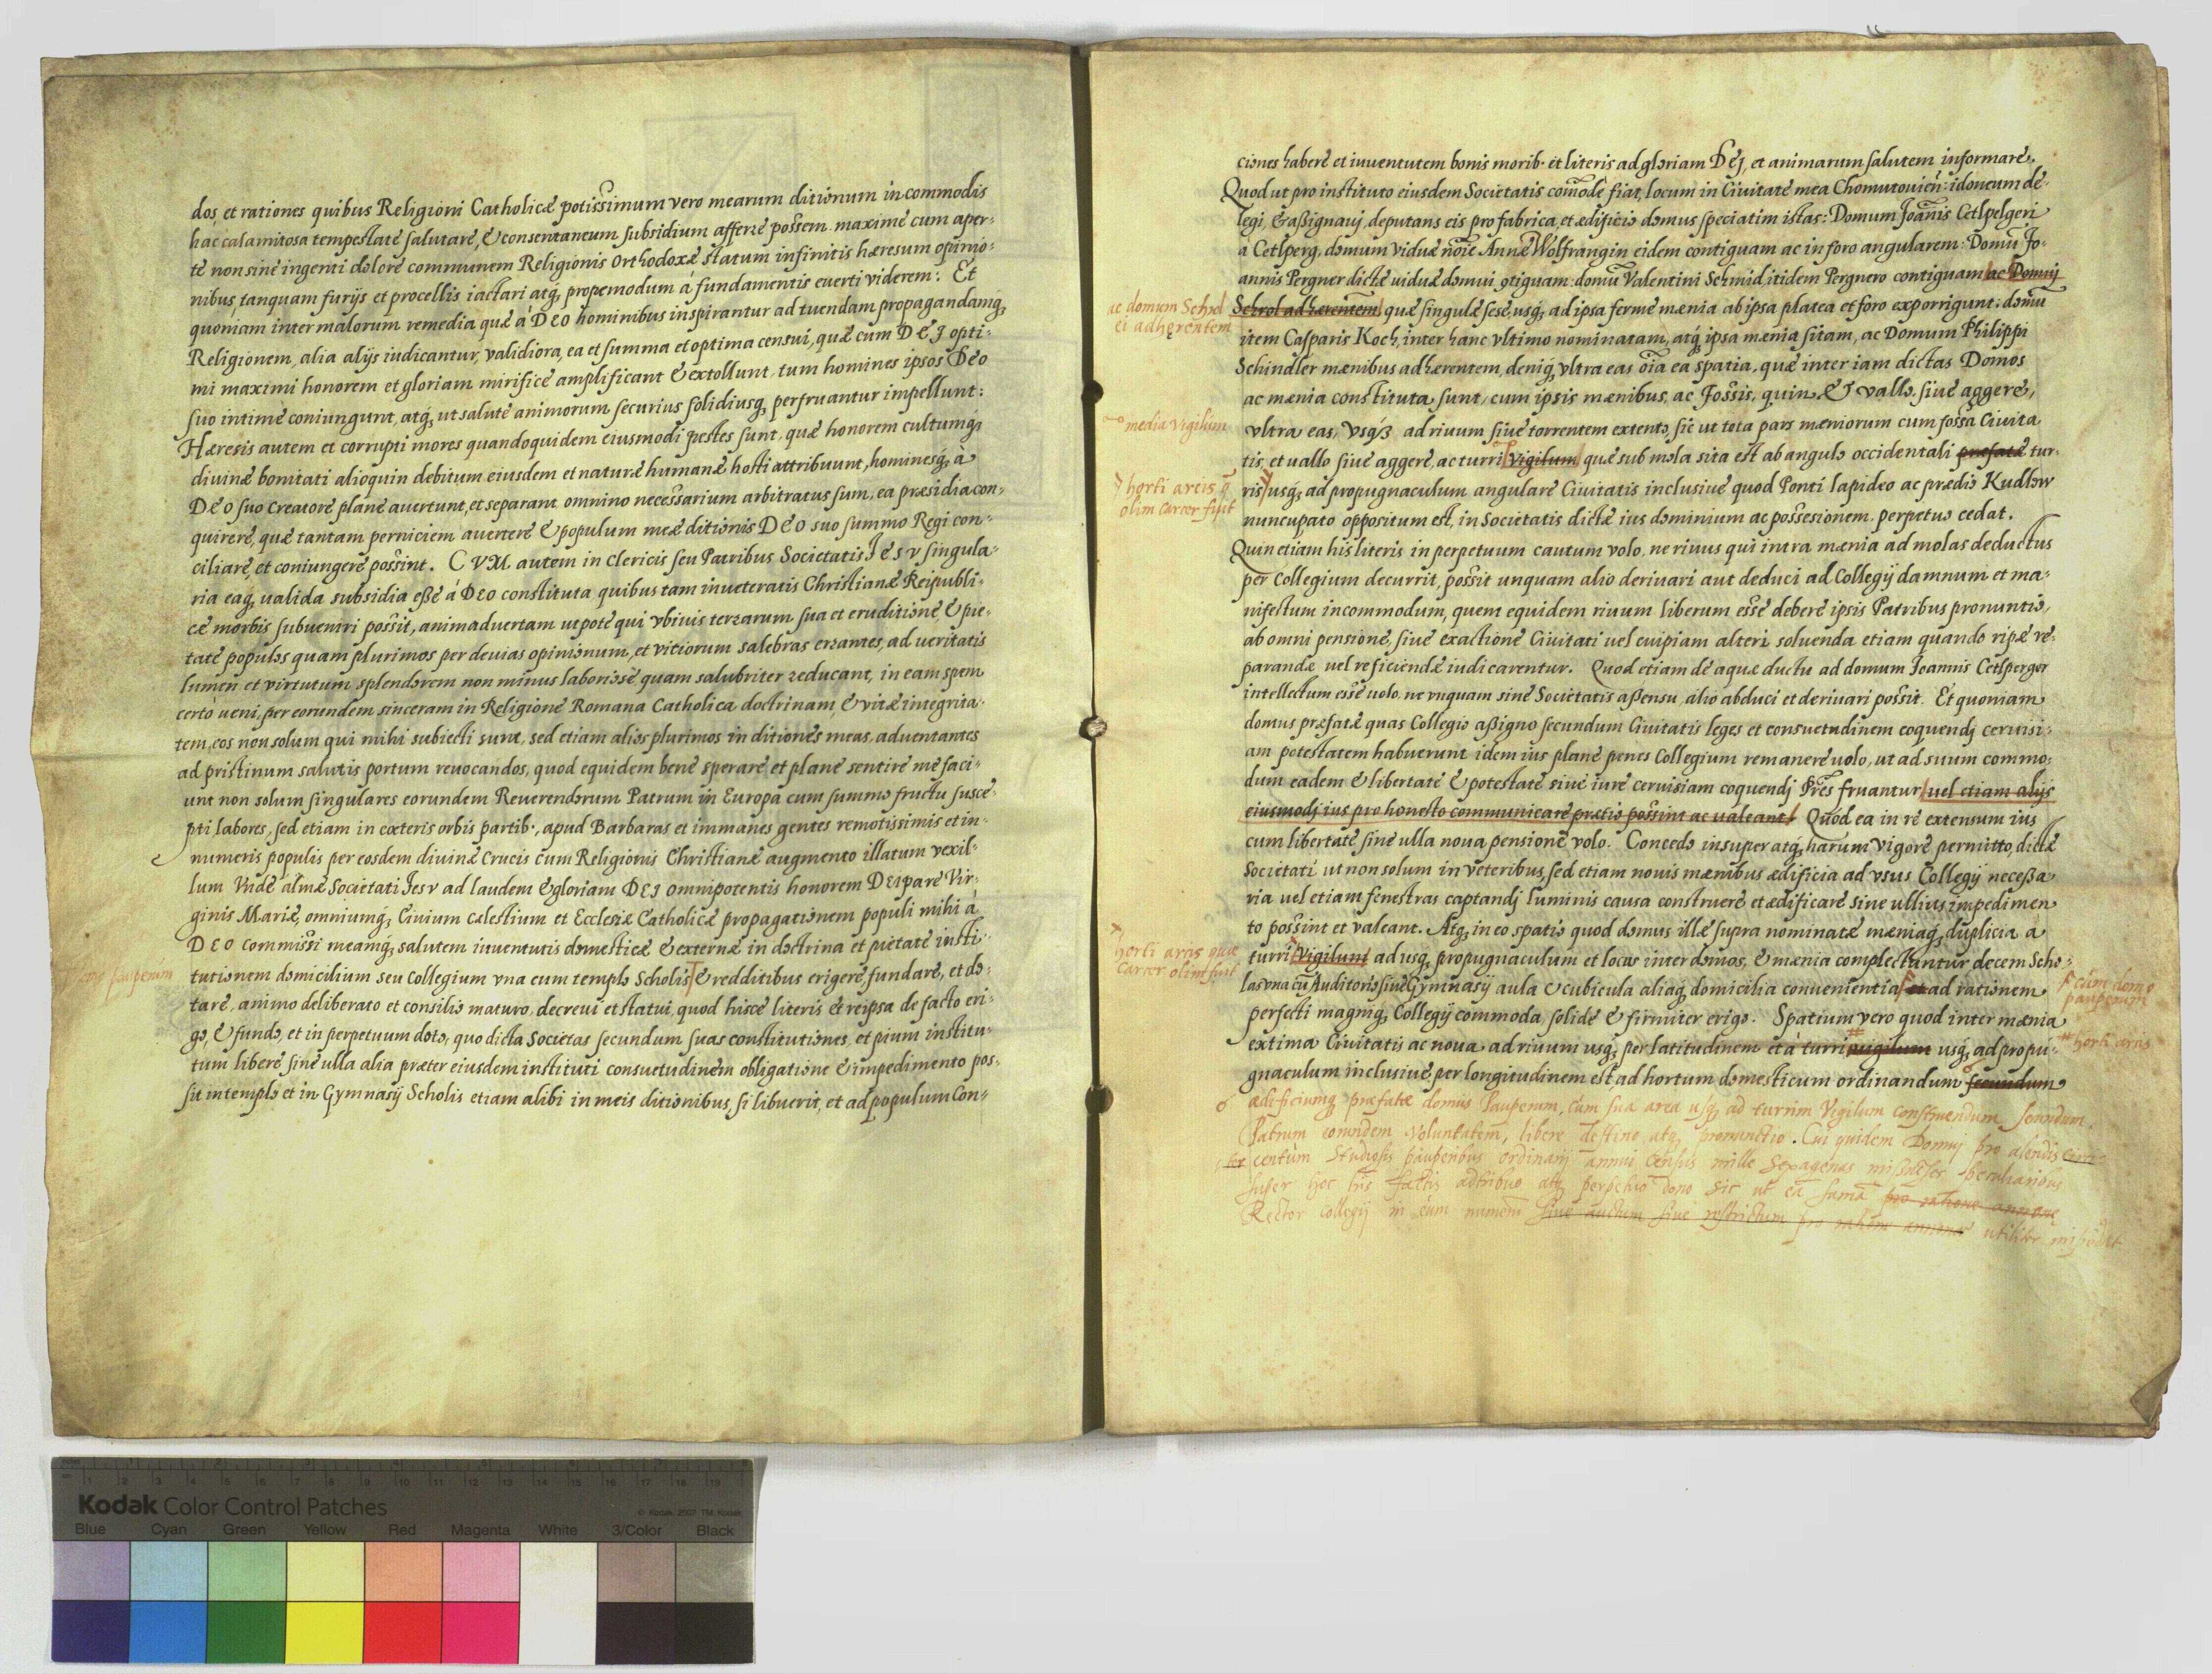 dos, et rationes quibus Religioni Catholicæ potissimum vero mearum ditionum incommodis
hac calamitosa tempestate salutare, & consentaneum subsidium afferre possem. maxime cum aper-
te non sine ingenti dolore communem Religionis Orthodoxæ statum infinitis hæresum opinio-
nibus tanquam furijs et procellis iactari atq, propemodum á fundamentis euerti viderem: Et
quoniam inter malorum remedia quæ á DEO hominibus inspirantur ad tuendam propagandamq,
Religionem, alia alijs iudicantur, validiora, ea et summa et optima censui, quæ cum DEJ opti-
mi maximi honorem et gloriam mirificè amplificant & extollunt, tum homines ipsos DEO
suo intimè coniungunt, atq, ut salute animorum securius solidiusq, perfruantur impellunt:
Hæresis autem et corrupti mores quandoquidem eiusmodi pestes sunt, quæ honorem cultumq,
divinæ bonitati alioquin debitum eiusdem et naturæ humanæ hosti attribuunt, hominesq, à
DEO suo Creatore planè auertunt, et separant omnino necessarium arbitratus sum, ea præsidia con-
quirere, quæ tantam perniciem auertere & populum meæ ditionis DEO suo summo Regi con-
ciliare, et coniungere possint. CVM autem in Clericis seu Patribus Societatis JESV singula-
ria eaq, ualida subsidia esse á DEO constituta quibus tam inueteratis Christianæ Reipubli-
cæ morbis subueniri possit, animaduertam utpote qui vbiuis terrarum sua et eruditione & pie-
tate populos quam plurimos per deuias opinionum, et vitiorum salebras errantes, ad ueritatis
lumen et virtutum splendorem non minus laboriosè quam salubriter reducant, in eam spem
certò ueni, per eorundem sinceram in Religione Romana Catholica doctrinam, & vitæ integrita-
tem, eos non solum qui mihi subiecti sunt, sed etiam alios plurimos in ditiones meas, aduentantes
ad pristinum salutis portum reuocandos, quod equidem bene sperare et planè sentire me faci-
unt non solum singulares eorundem Reuerendorum Patrum in Europa cum summo fructu susce-
pti labores, sed etiam in cæteris orbis partib., apud Barbaras et immanes gentes remotissimis et in-
numeris populis per eosdem diuinæ Crucis cum Religionis Christianæ augmento illatum vexil-
lum Vnde almæ Societati Jesv ad laudem & gloriam DEJ omnipotentis honorem DEIparæ Vir-
ginis Mariæ, omniumq, Ciuium cælestium et Ecclesiæ Catholicæ propagationem populi mihi à
DEO commissi meamq, salutem iuuentutis domesticæ & externæ in doctrina et pietate insti-
pauperum
tutionem domicilium seu Collegium vna cum templo Scholis & redditibus erigere, fundare, et do-
tare, animo deliberato et consilio maturo, decreui et statui, quod hisce literis & reipsa de facto eri-
go, & fundo, et in perpetuum doto, quo dicta Societas secundum suas constitutiones, et pium institu-
tum liberè sine ulla alia præter eiusdem instituti consuetudinem obligatione & impedimento pos-
sit in templo et in Gymnasij Scholis etiam alibi in meis ditionibus, si libuerit, et ad populum Con-
ciones habere et iuuentutem bonis morib. et literis ad gloriam DEJ, et animarum salutem informare.
Quod ut pro instituto eiusdem Societatis comodè fiat, locum in Ciuitate mea Chomutouien: idoneum de-
legi, & assignaui, deputans eis pro fabrica, et ædificio domus speciatim istas: Domum Joanis Cetlpelgeri
à Cetlperg, domum viduæ noie Annæ Wolfrangin eidem contiguam ac in foro angularem: Domu Jo-
annis Pergner dictæ uiduæ domui 9tiguam: domu Valentini Schmid itidem Pergnero contiguam ac Domuj
ac domum Schrol
ei adhærentem
Schrol adhærentem quæ singulæ sese, usq, ad ipsa ferme mænia ab ipsa platea et foro exporrigunt: domu
item Casparis Koch, inter hanc vltimo nominatam, atq, ipsa mænia sitam, ac Domum Philippi
Schindler mænibus adhærentem, deniq, vltra eas oia ea spatia, quæ inter iam dictas Domos
ac mænia constituta sunt, cum ipsis mænibus, ac Fossis, quin & vallo, siue aggere,
media Vigilum
vltra eas, vsq3 ad riuum siue torrentem extento, sic ut tota pars mæniorum cum fossa Ciuita
tis, et uallo siue aggere, ac turri Vigilum quæ sub mola sita est ab angulo occidentali præfatæ tur-
horti arcis q
olim Carcer fuit
ris usq, ad propugnaculum angulare Ciuitatis inclusiue quod Ponti lapideo ac prædio Kudlow
nuncupato oppositum est, in Societatis dictæ ius dominium ac possesionem perpetuo cedat.
Quin etiam his literis in perpetuum cautum volo, ne riuus qui intra mænia ad molas deductus
per Collegium decurrit, possit unquam alio deriuari aut deduci ad Collegij damnum et ma-
nifestum incommodum, quem equidem riuum liberum esse debere ipsis Patribus pronuntio,
ab omni pensione, siue exactione Ciuitati uel cuipiam alteri soluenda etiam quando ripæ re-
parandæ uel reficiendæ iudicarentur. Quod etiam de aquæ ductu ad domum Joannis Cetlsperger
intellectum esse uolo, ne vnquam sine Societatis assensu, alio abduci et deriuari possit. Et quoniam
domus præfatæ quas Collegio assigno secundum Ciuitatis leges et consuetudinem coquendj ceruisi-
am potestatem habuerunt idem ius planè penes Collegium remanere uolo, ut ad suum commo-
dum eadem & libertate & potestate siue iure ceruisiam coquendj Pres fruantur uel etiam alijs
eiusmodj ius pro honesto communicare prætio possint ac ualeant. Quòd ea in re extensum ius
cum libertate sine ulla noua pensione volo. Concedo insuper atq, harum vigore permitto, dictæ
Societati ut non solum in veteribus, sed etiam nouis mænibus ædificia ad vsus Collegij necessa
ria uel etiam fenestras captandj luminis causa construere et ædificare sine ullius impedimen
to possint et valeant. Atq, in eo spatio quod domus illæ supra nominatæ mæniaq, duplicia a
horti arcis quæ
Carcer olim fuit
turri Vigilum ad usq, propugnaculum et locus inter domos, & mænia complectuntur decem Scho-
las vna cu Auditorio siue Gymnasij aula & cubicula aliaq, domicilia conuenientia et ad rationem
cum domo
pauperum
perfecti magniq, Collegij commoda, solidè & firmiter erigo. Spatium vero quod inter mænia
extima Ciuitatis ac noua ad riuum usq, per latitudinem et à turri vigilum usq, ad propu-
# horti arcis
gnaculum inclusiue per longitudinem est ad hortum domesticum ordinandum secundum
ædificiumq præfatæ domus Pauperum, cum sua area usq, ad turrim Vigilum construendum secundum
Patrum eorundem voluntatem, liberè destino atq, pronunctio. Cui quidem Domuj pro alendis
centum studiosis pauperibus ordinarij annui Census mille Sexagenas misnenses
super hoc his factis adtribuo atq perpetuo dono sic ut ea suma pro ratione annonæ
Rector Collegij in eum numerum siue auctum siue restrictum pro ratione annonæ utiliter